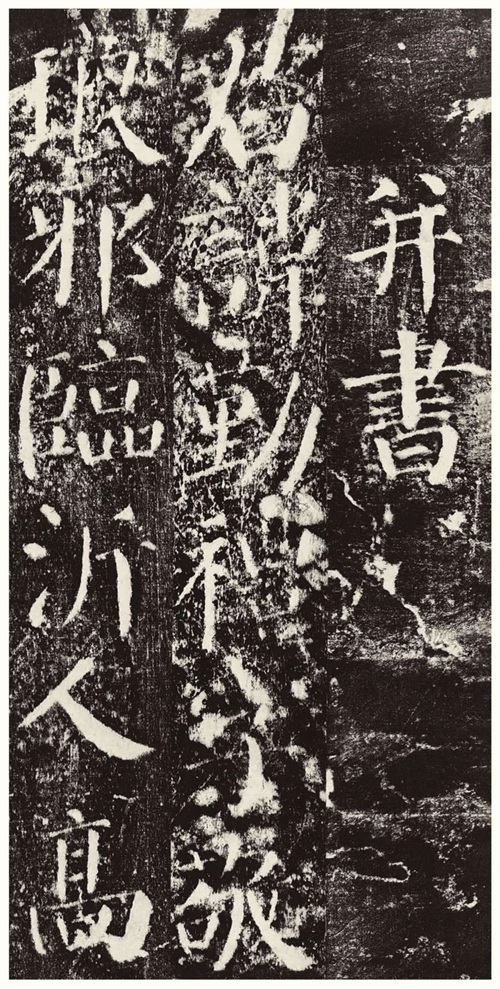 并書
君諱勤礼字敬
琅邪臨沂人高